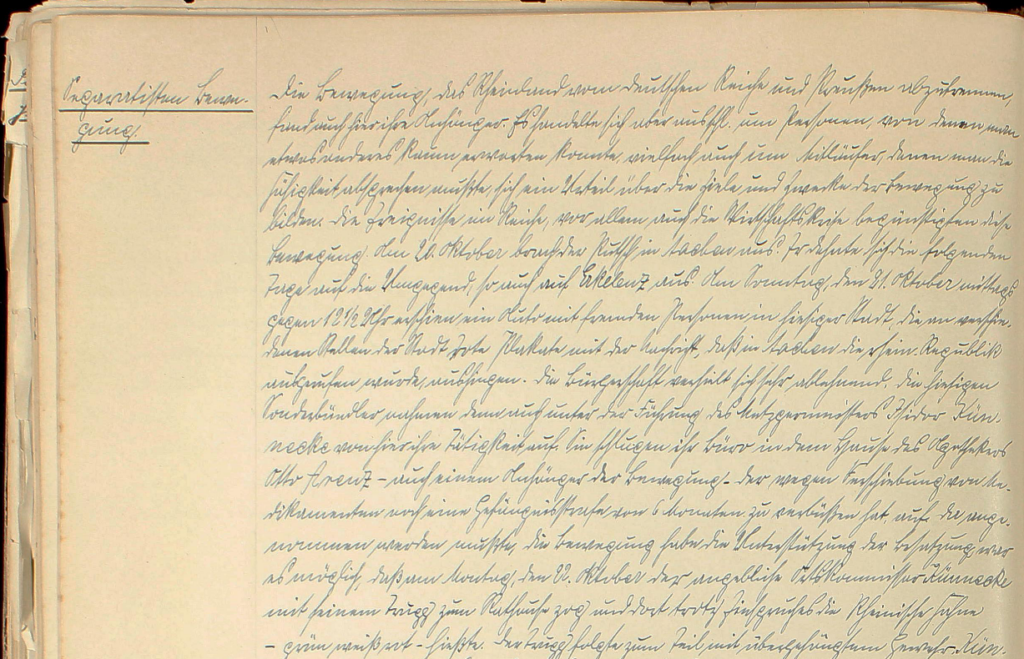 Separatisten Bewe-
gung.
Die Bewegung, das Rheinland vom deutschen Reiche und Preußen abzutrennen,
fand auch hier ihre Anhänger. Es handelte sich aber ausschl. um Personen, von denen man
etwas anderes kaum erwarten konnte, vielfach auch um Mitläufer, denen man die
Fähigkeit absprechen mußte, sich ein Urteil über die Ziele und Zwecke der Bewegung zu
bilden. Die Ereignisse im Reiche, vor allem auch die Wirtschaftskrise begünstigten diese
Bewegung. Am 20. Oktober brach der Putsch in Aachen aus. Er dehnte sich die folgenden
Tage auf die Umgegend, so auch auf Erkelenz aus. Am Sonntag, den 21. Oktober mittags
gegen 12 1/2 Uhr erschien ein Auto mit fremden Personen in hiesiger Stadt, die an verschie-
denen Stellen der Stadt rote Plakate mit der Aufschrift, daß in Aachen die rhein. Republik
ausgerufen wurde, aushingen. Die Bürgerschaft verhielt sich sehr ablehnend. Die hiesigen
Sonderbündler nahmen denn auch unter der Führung des Metzgermeisters Isidor Kün-
necke von hier ihre Tätigkeit auf. Sie schlugen ihr Büro in dem Hause des Apothekers
Otto Arenz - auch einem Anhänger der Bewegung - der wegen Verschiebung von Me-
dikamenten noch eine Gefängnisstrafe von 6 Monaten zu verbüßen hat, auf. Da ange-
nommen werden mußte, die Bewegung habe die Unterstützung der Besatzung, war
es möglich, daß am Montag, den 22. Oktober der angebliche Ortskommissar Künnecke
mit seinem Trupp zum Rathause zog und dort trotz Einspruches die Rheinische Fahne
- grün weiß rot - hießte. Der Trupp folgte zum Teil mit übergehängtem Gewehr. Kün-